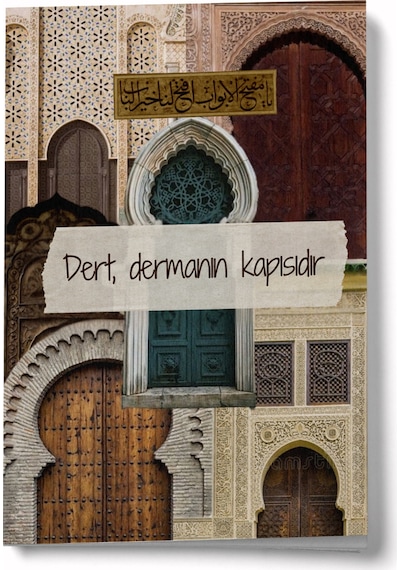 يا مفتح الابواب افتح لنا خير الباب
Dert, dermanın kapısıdır